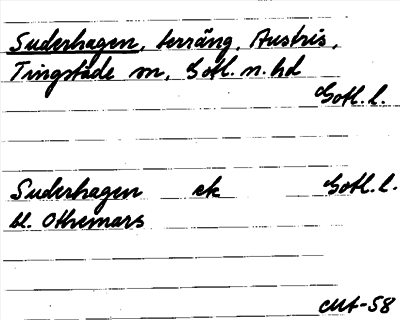 Suderhagen, terräng, Austris,
Tingstäde sn, Gotl. n. hd
Gotl. l.
Suderhagen ek Gotl. l.
bl. Othemars